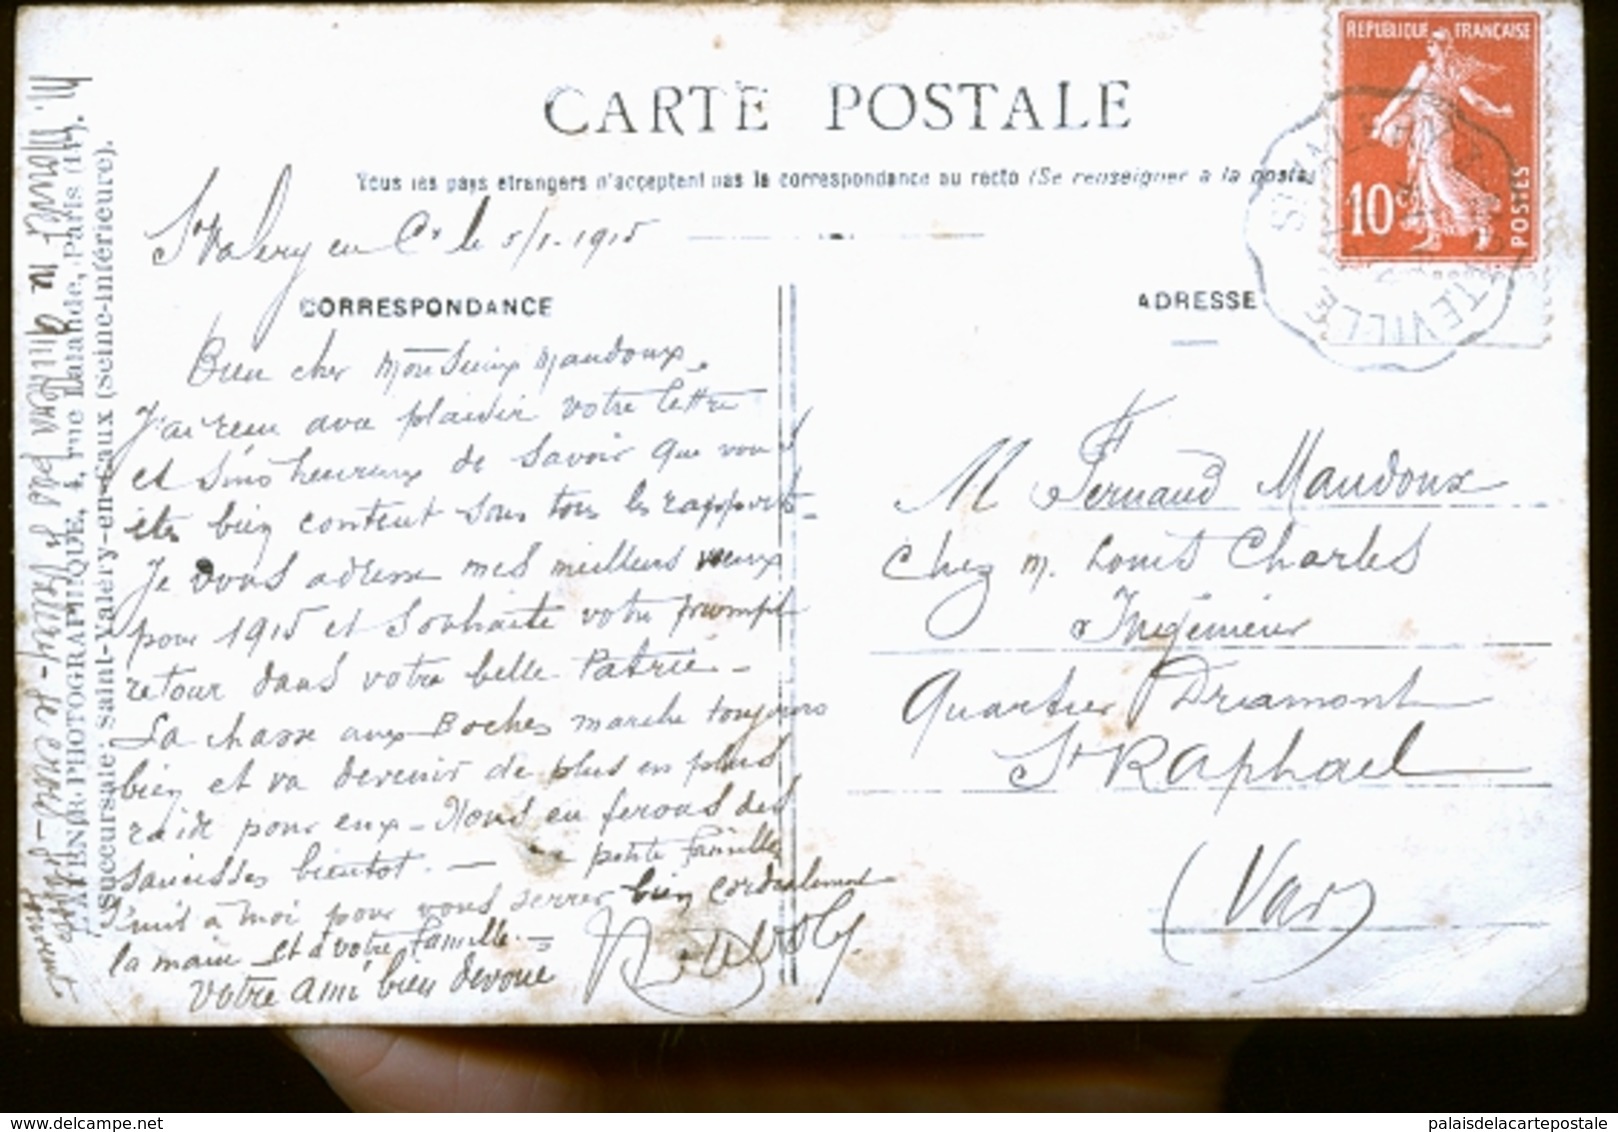 CARTE POSTALE
Tous les pays étrangers n'acceptent pas la correspondance au recto (Se renseigner à la poste
REPUBLIQUE FRANÇAISE
10c
POSTES
St Valery en Cx le 5/1-1915
CORRESPONDANCE
Bien cher Monsieur Maudoux,
J'ai reçu avec plaisir votre lettre
et suis heureux de savoir que vous
êtes bien content sous tous les rapports-
Je vous adresse mes meilleurs vœux
pour 1915 et souhaite votre prompt
retour dans votre belle Patrie -
La chasse aux Boches marche toujours
bien et va devenir de plus en plus
raide pour eux - Nous en ferons des
saucisses bientot. - petite famille
s'unit à moi pour vous serrer bien cordialement
la main et à votre famille. -
Votre ami bien devoué
ADRESSE
M Fernand Maudoux
Chez M. Louis Charles
Ingénieur
Quartier Driamont
St Raphael
(Var)
4, rue Lalande, Paris (14).
Succursale: Saint-Valéry-en-Caux (Seine-Inférieure).
PHOTOGRAPHIQUE,
palaisdelacartepostale